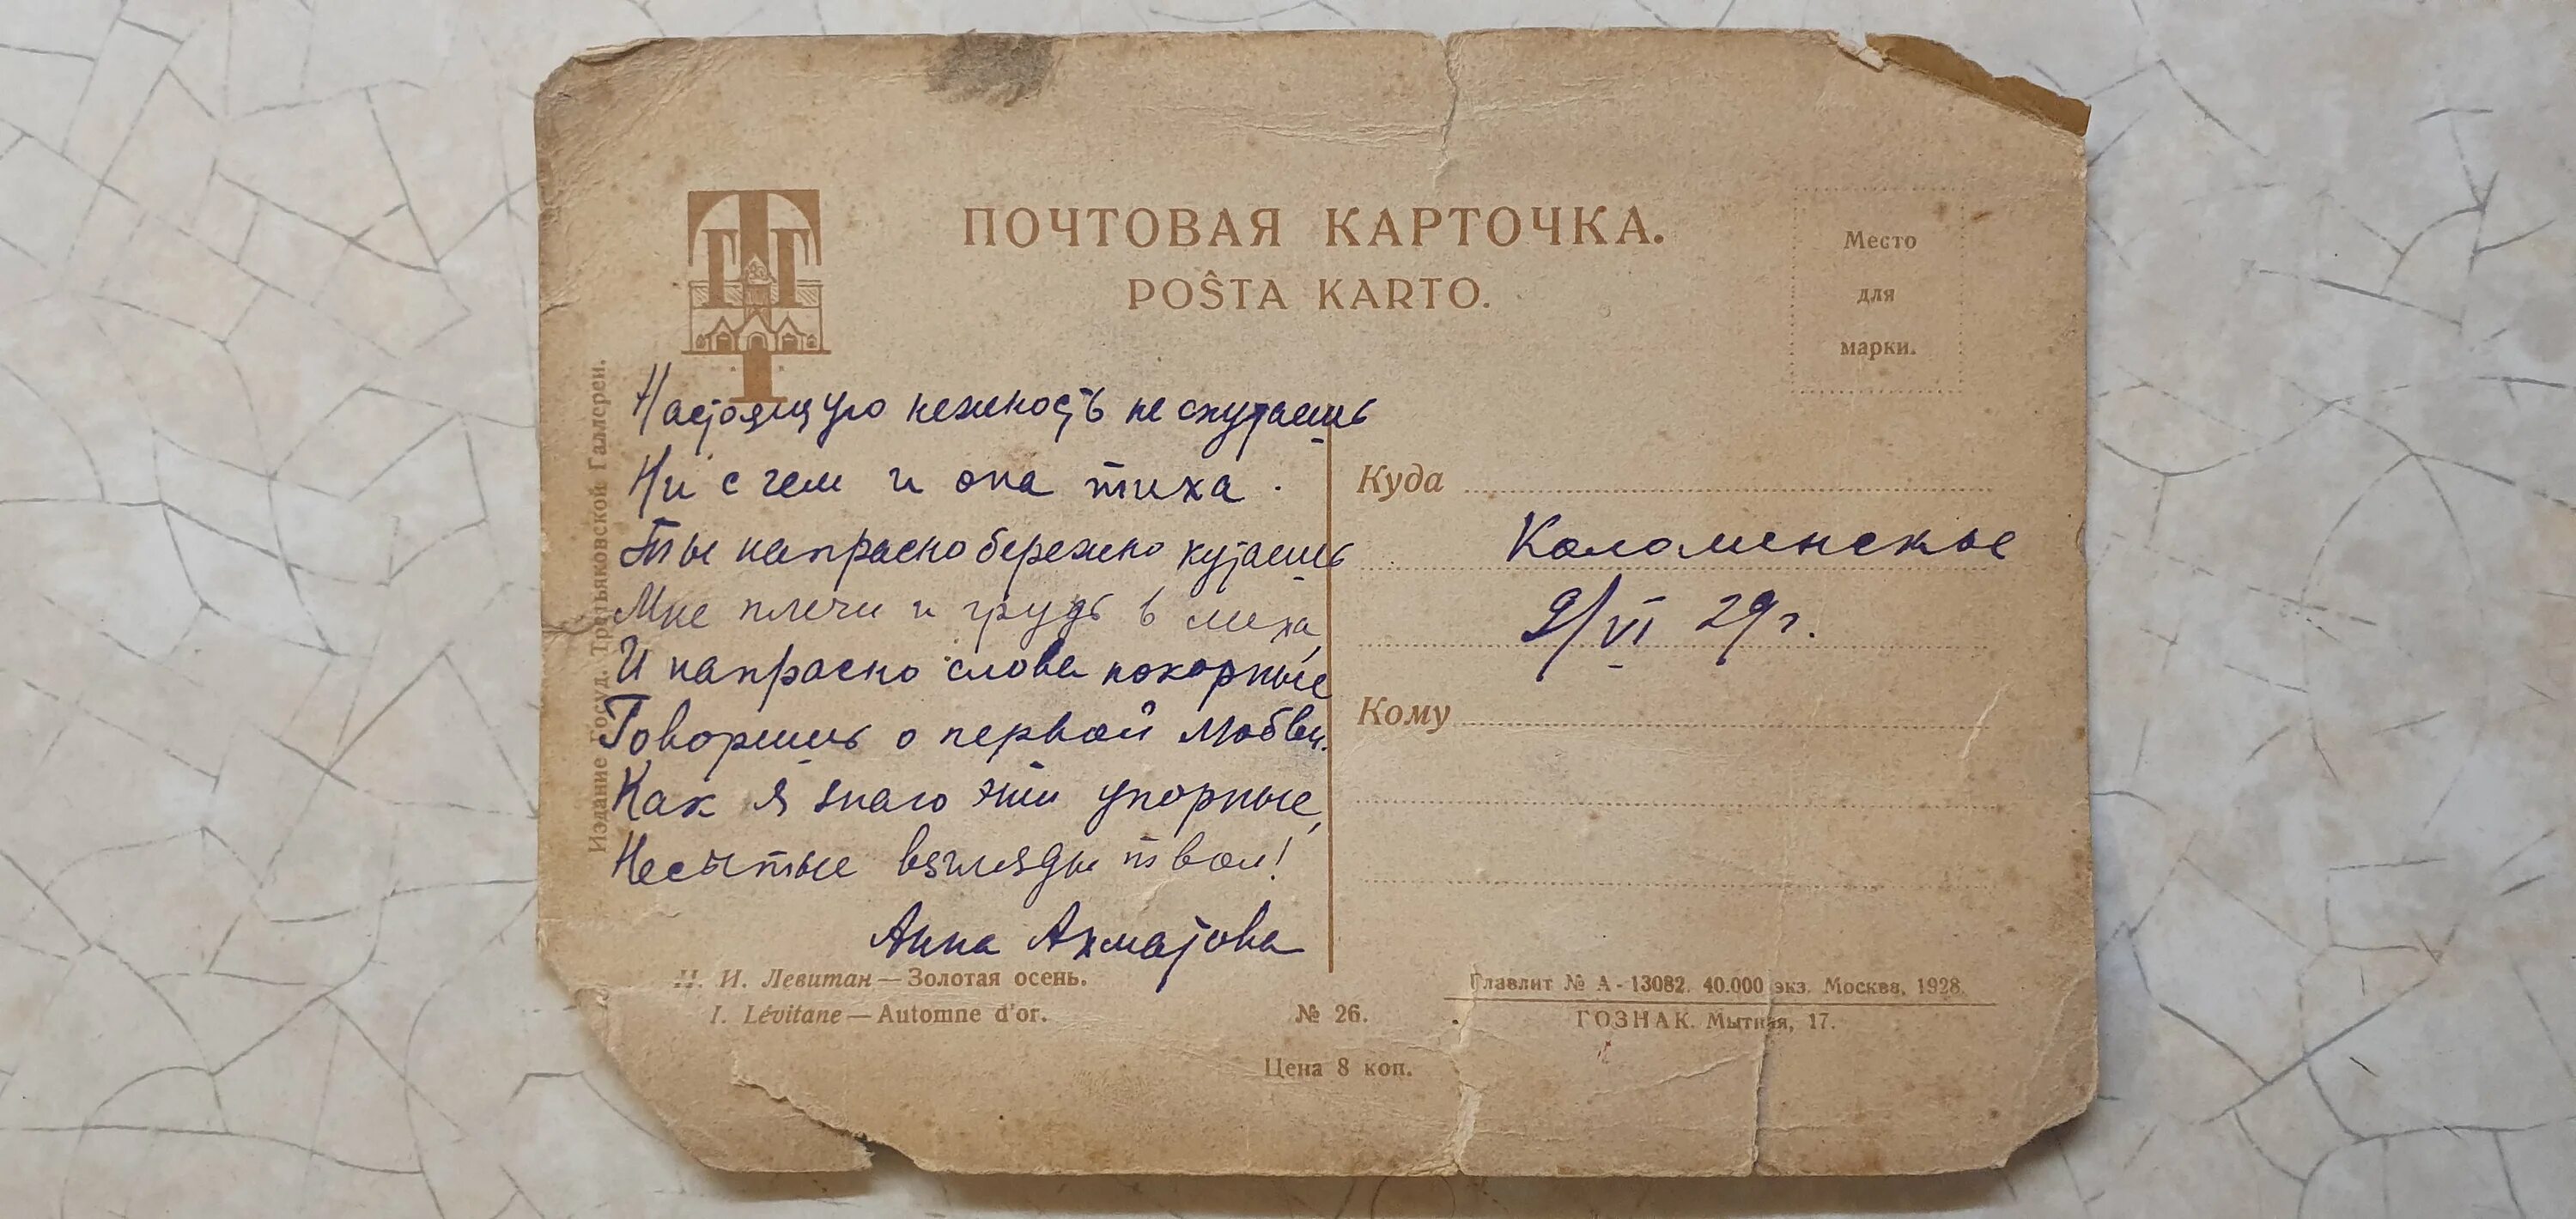 ПОЧТОВАЯ КАРТОЧКА.
POŜTA KARTO.
Место
для
марки.
Издание Госуд. Третьяковской Галлереи.
Настоящую нежность не спутаешь
Ни с чем и она тиха.
Ты напрасно бережно кутаешь
Мне плечи и грудь в меха,
И напрасно слова покорные
Говоришь о первой любви.
Как я знаю эти упорные,
Несытые взгляды твои!
Анна Ахматова
Куда
Коломенское
9/VI 29 г.
Кому
И. И. Левитан — Золотая осень.
I. Lévitane — Automne d'or.
№ 26.
Цена 8 коп.
Главлит № А - 13082. 40.000 экз. Москва, 1928.
ГОЗНАК. Мытная, 17.